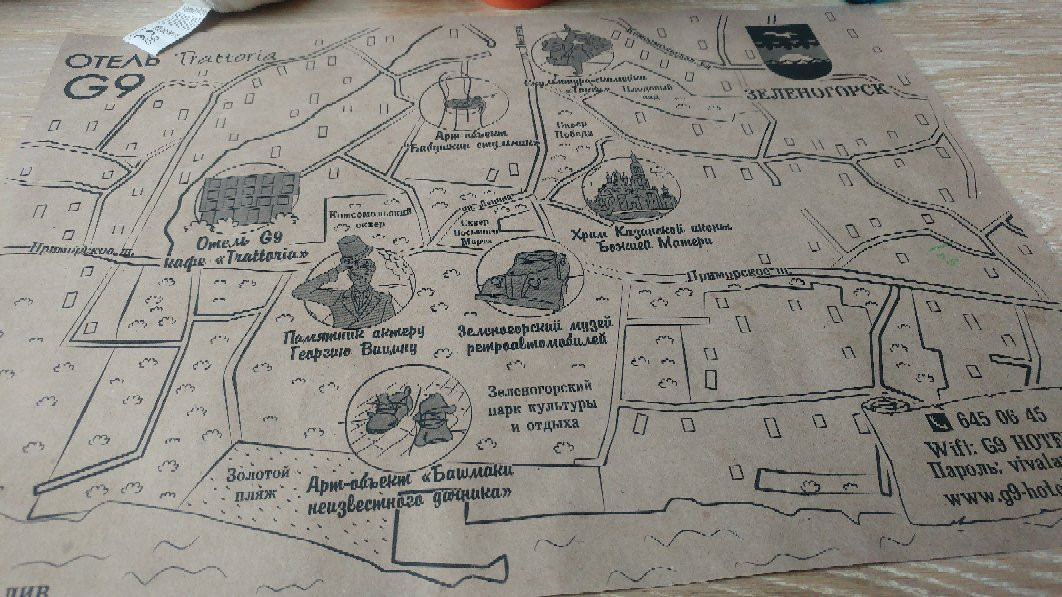 Отель
G9
Trattoria
Скульптура-символ
Плодовый
сад
ЗЕЛЕНОГОРСК
Арт-объект
"Бабушкин стульчик"
Сквер
Победы
ул. Ленина
Сквер
Восьмого
Марта
Храм Казанской иконы
Божией Матери
Комсомольский
сквер
Отель G9
кафе «Trattoria»
Приморское ш.
Приморское ш.
Памятник актеру
Георгию Вицину
Зеленогорский музей
ретроавтомобилей
Зеленогорский
парк культуры
и отдыха
Золотой
пляж
Арт-объект «Башмаки
неизвестного дачника»
645 06 45
Wifi: G9 HOTE
Пароль: vivala
www.g9-hote
ЛИВ